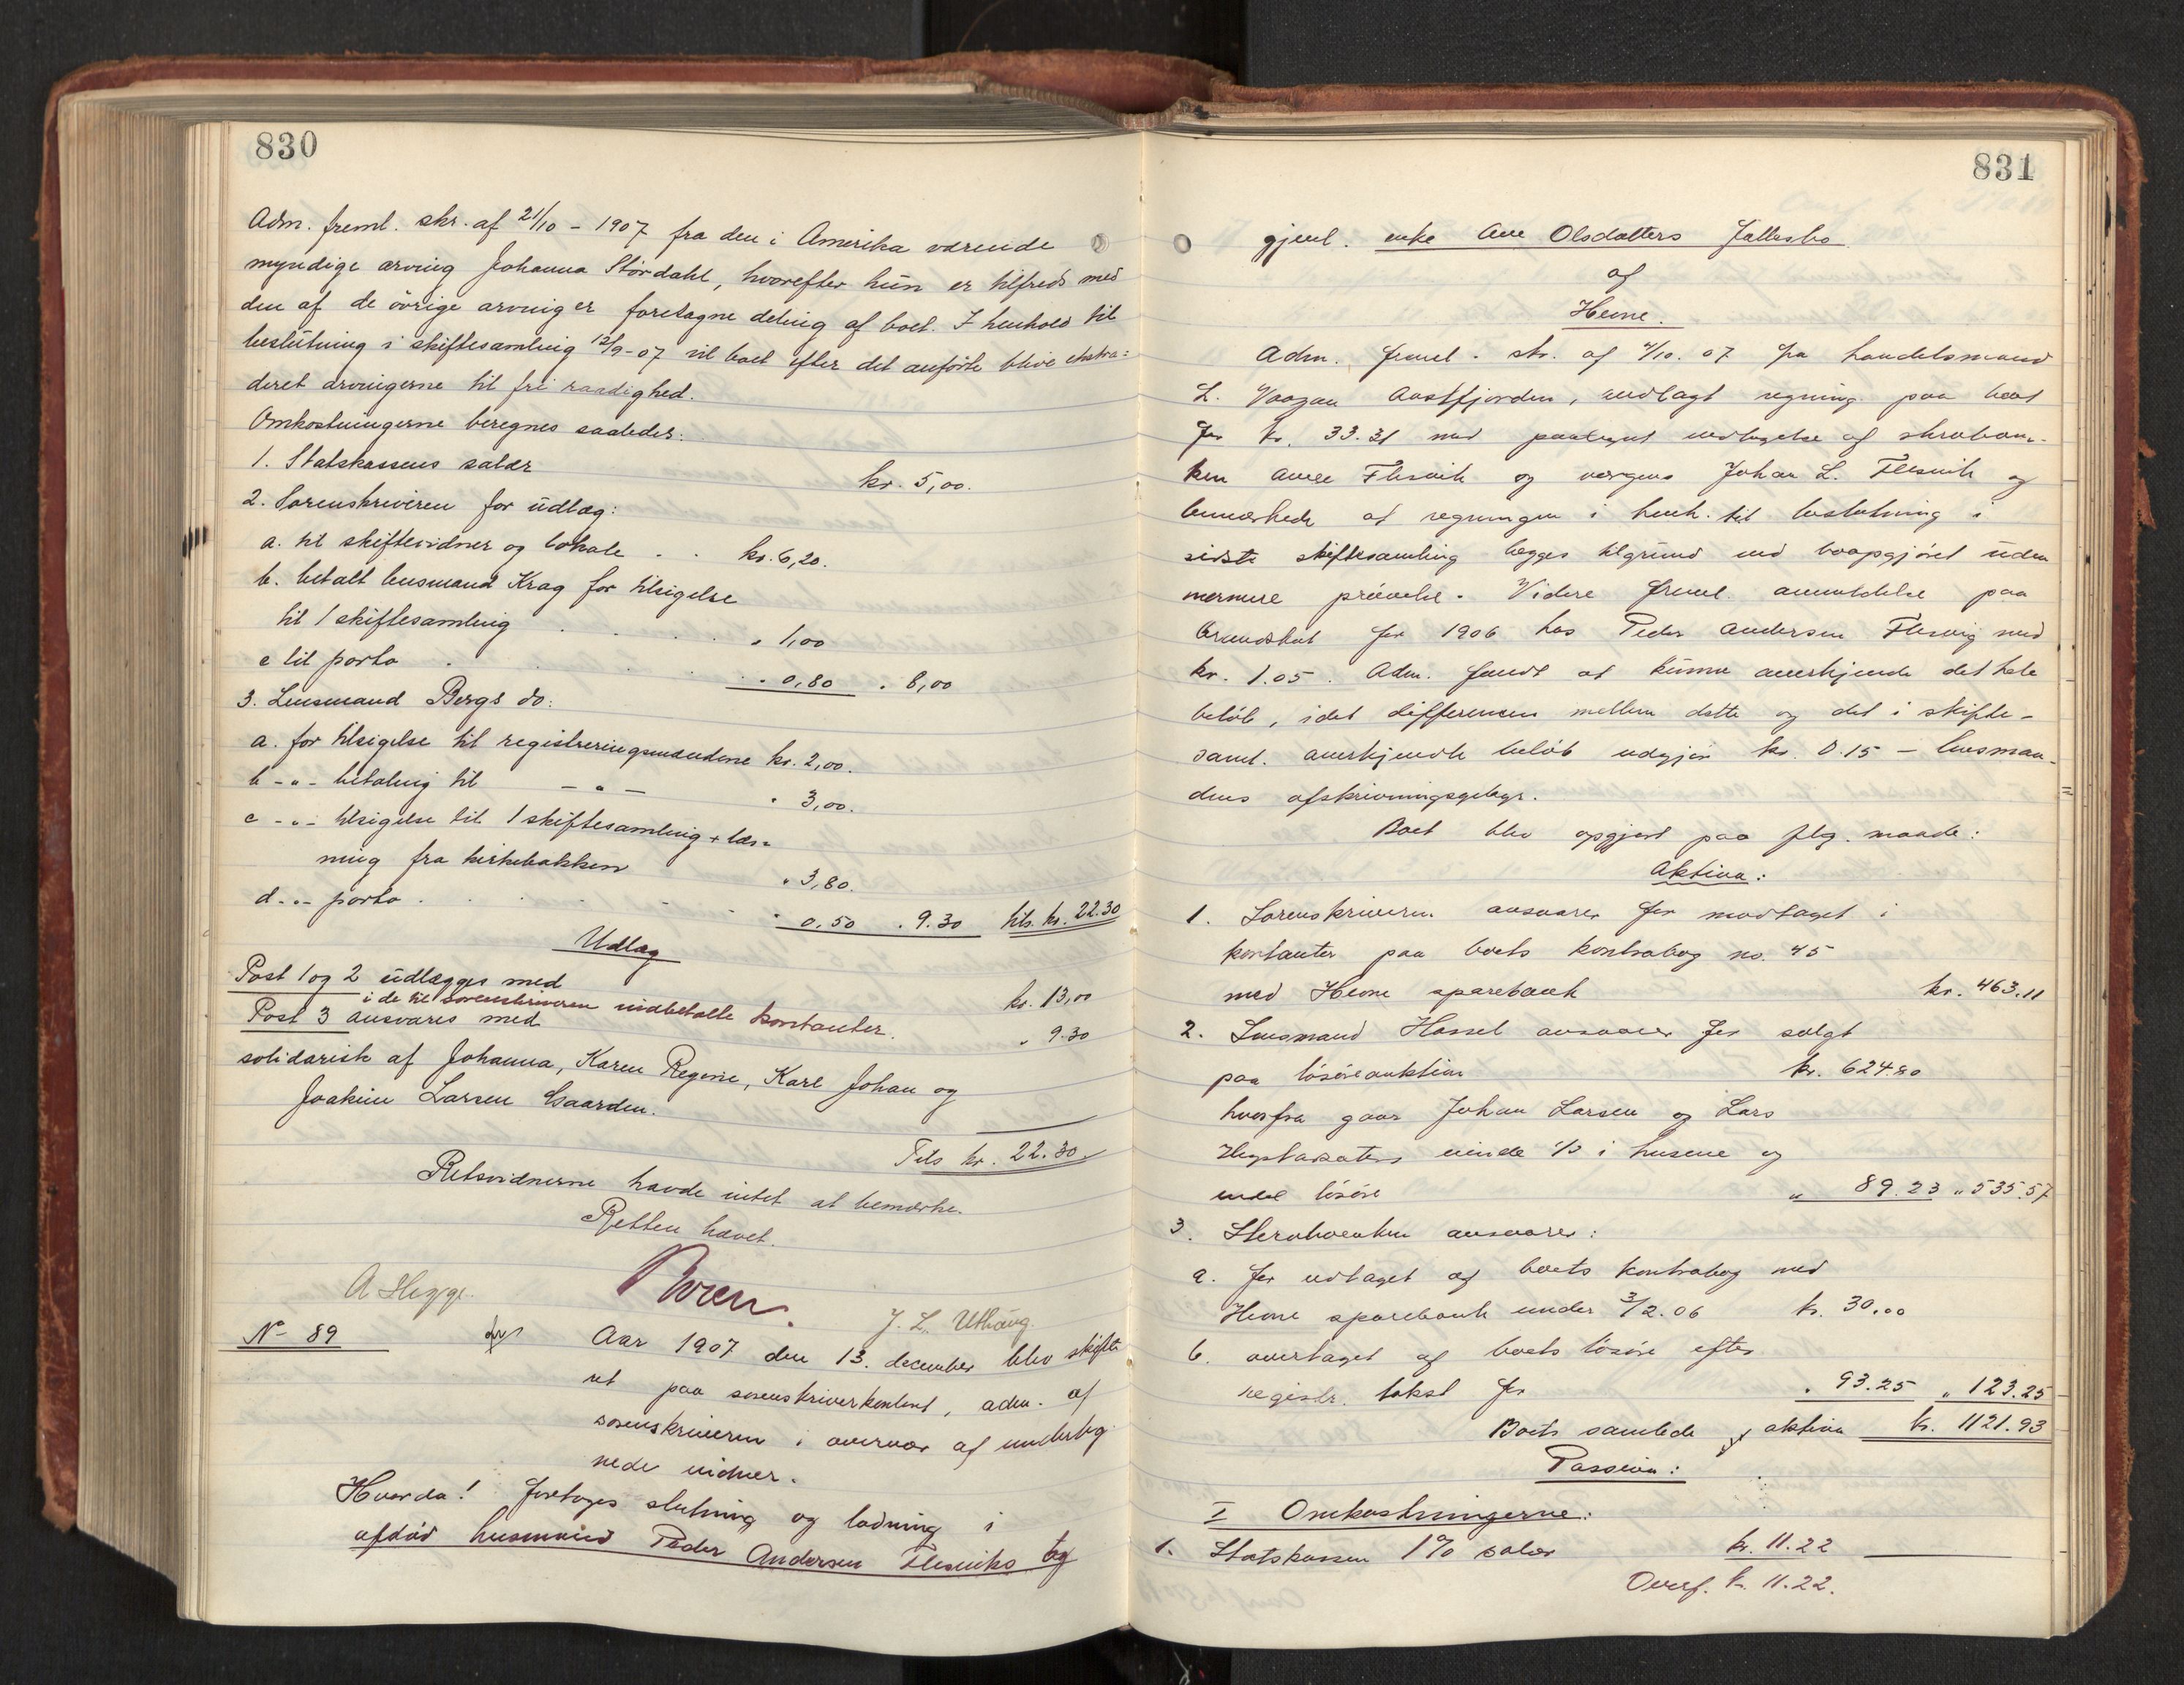 830
Adm. freml. skr. af 21/10 - 1907 fra den i Amerika værende
myndige arving Johanna Stördahl, hvorefter hun er tilfreds med
den af de övrige arvinger foretagne deling af boet. I henhold til
beslutning i skiftesamling 12/9-07 vil boet efter det anförte blive ekstra=
deret arvingerne til fri raadighed.
Omkostningerne beregnes saaledes:
1. Statskassens salær kr. 5,00.
2. Sorenskriveren for udlæg:
a. til skiftevidner og lokale . . kr. 6,20.
b. betalt lensmand Krag for tilsigelse
til 1 skiftesamling . . . . " 1,00
c til porto . . . . . " 0,80 . 8,00
3. Lensmand Bergs do:
a. for tilsigelse til registreringsmændene kr. 2,00.
b - " - betaling til - " - " 3,00.
c - " - tilsigelse til 1 skiftesamling + læs=
ning fra kirkebakken " 3,80.
d - " - porto . . . . . " 0,50 . 9.30 tils. kr. 22.30
Udlæg
Post 1 og 2 udlægges med kr. 13,00
i de til sorenskriveren indbetalte kontanter.
Post 3 ansvares med " 9.30
solidarisk af Johanna, Karen Regine, Karl Johan og
Joakim Larsen Gaarden.
Tils kr. 22.30.
Retsvidnerne havde intet at bemærke.
Retten hævet.
Boren.
A Hegge. J. L. Uthaug.
No 89
Aar 1907 den 13. december blev skifte
ret paa sorenskriverkontoret, adm. af
sorenskriveren i overvær af underteg
nede vidner.
Hvorda! foretoges slutning og lodning i
afdöd husmand Peder Andersen Flesviks og
831
gjenl. enke Ane Olsdatters fællesbo
af
Hevne.
Adm. freml. skr. af 4/10. 07 fra handelsmand
L. Vaagan Aastfjorden, vedlagt regning paa boet
for kr. 33.31 med paategnet vedtagelse af skrøboen-
ken Ane Flesvik og vergens Johan L. Flesvik og
bemærkede at regningen i henh. til beslutning i
sidste skiftesamling lægges tilgrund ved boopgjöret uden
nærmere prövelse. Videre freml. anmeldelse paa
brandskat for 1906 hos Peder Andersen Flesvig med
kr. 1.05. Adm. fandt at kunne anerkjende det hele
belöb, idet differencen mellem dette og det i skifte-
saml. anerkjendte belöb udgjör kr. 0.15 - lensman-
dens afskrivningsgebyr.
Boet blev opgjort paa flg. maade:
Aktiva:
1. Sorenskriveren ansvarer for modtaget i
kontanter paa boets kontrabog no. 45
med Hevne sparebank kr. 463.11
2. Lensmand Hassel ansvarer for solgt
paa lösöreauktion kr. 624.80
hvorfra gaar Johan Larsen og Lars
eiende 1/3 i husene og
endel lösöre " 89.23 " 535.57
3. Sterboenken ansvarer:
a. for udtaget af boets kontrabog med
Hevne sparebank under 3/2.06 kr. 30.00
b. overtaget af boets lösöre efter
registr. takst for " 93.25 " 123.25
Boets samlede aktiva kr. 1121.93
Passiva:
I Omkostningerne:
1. Statskassen 1% salær kr. 11.22
Overf. kr. 11.22.